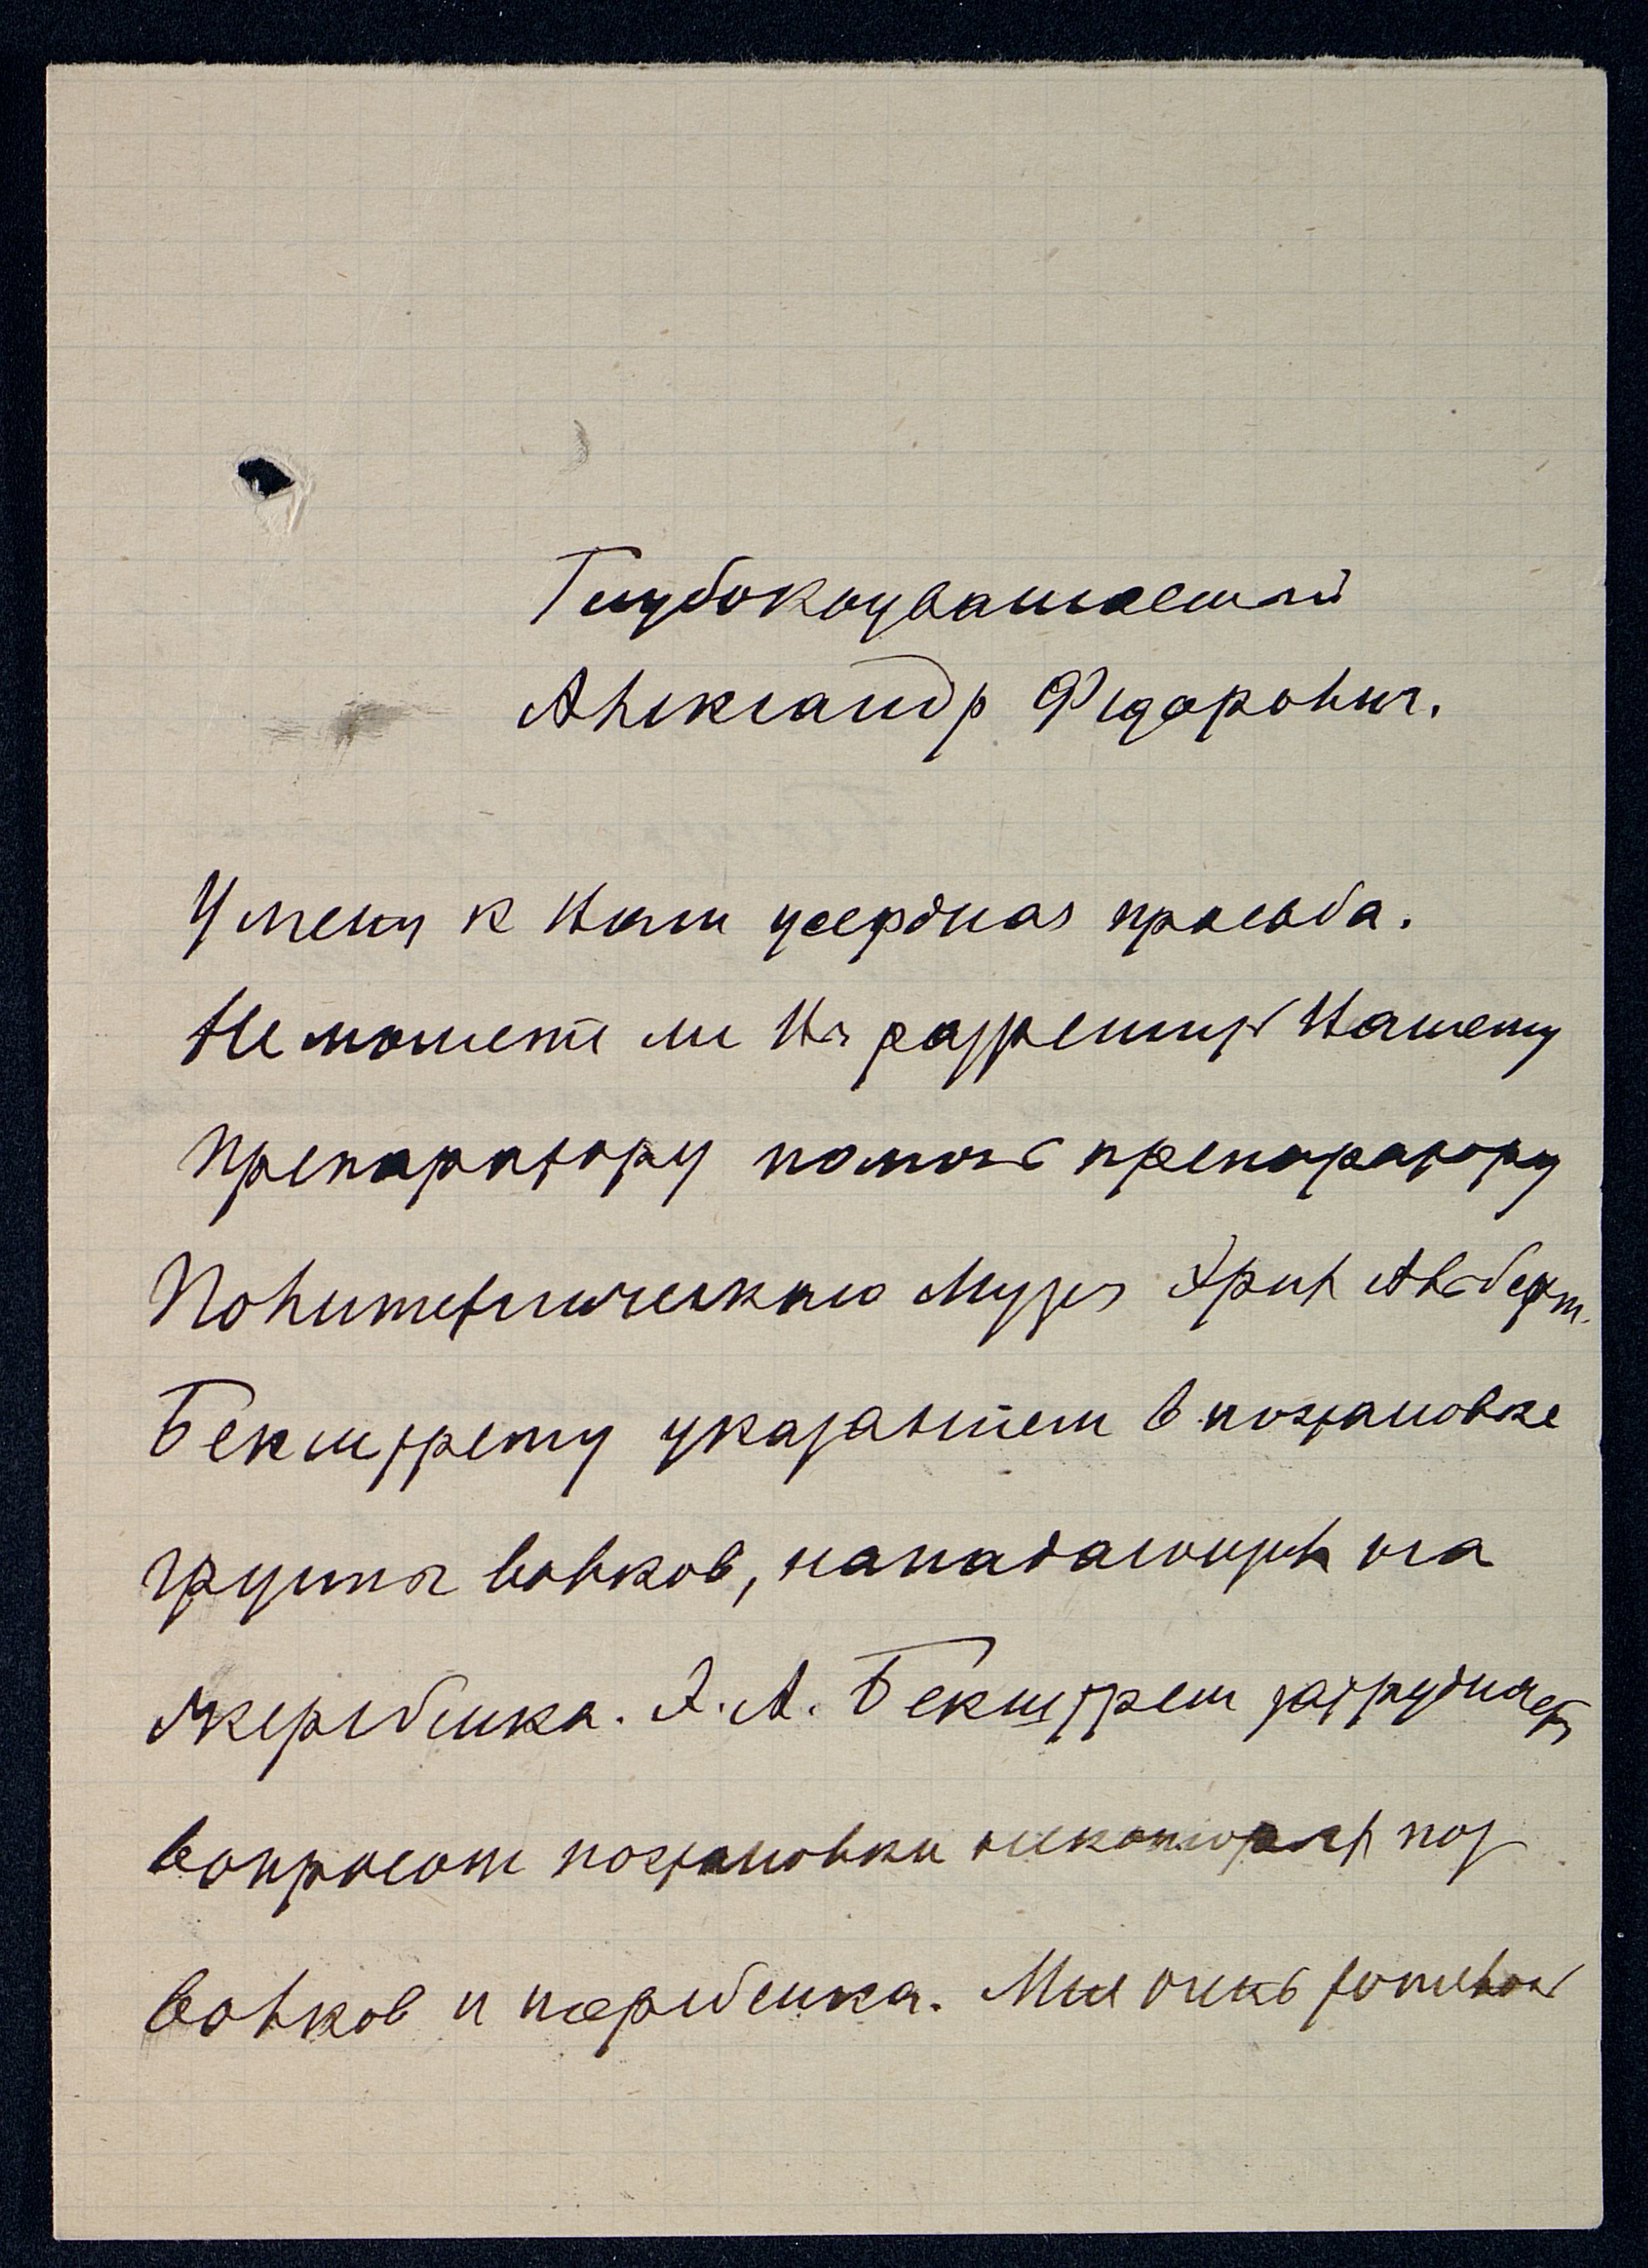 Глубокоуважаемый
Александр Федорович.
У меня к Вам усердная просьба.
Не можете ли Вы разрешить Вашему
препаратору помочь препаратору
Политехнического Музея Эрих Альберт.
Бекштрему указанием в постановке
группы волков, нападающих на
жеребенка. Э. А. Бекштрем затрудняет
вопросом постановки некоторых поз
волков и жеребенка. Мне очень хотелось